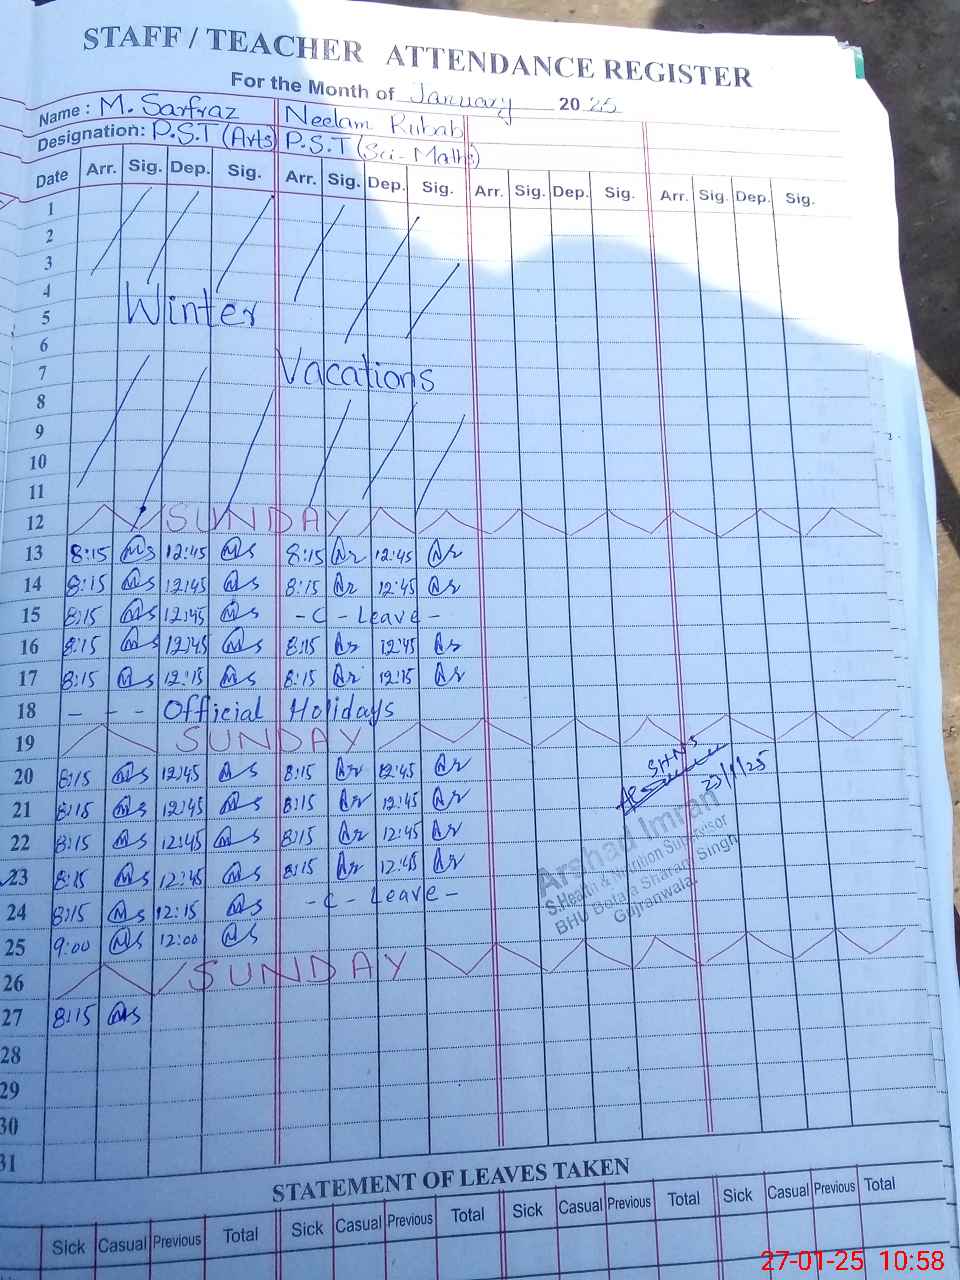 STAFF / TEACHER ATTENDANCE REGISTER
For the Month of January 2025
Name : M. Sarfraz Neelam Rubab
Designation: P.S.T (Arts) P.S.T (Sci-Maths)
Date Arr. Sig. Dep. Sig. Arr. Sig. Dep. Sig. Arr. Sig. Dep. Sig. Arr. Sig. Dep. Sig.
1
2
3
4
Winter
5
6
7 Vacations
8
9
10
11
12 SUNDAY
13 8:15 Ms 12:45 Ms 8:15 Nr 12:45 Nr
14 8:15 Ms 12:45 Ms 8:15 Nr 12:45 Nr
15 8:15 Ms 12:45 Ms - C - Leave -
16 8:15 Ms 12:45 Ms 8:15 Nr 12:45 Nr
17 8:15 Ms 12:15 Ms 8:15 Nr 12:15 Nr
18 - - - Official Holidays
19 SUNDAY
20 8:15 Ms 12:45 Ms 8:15 Nr 12:45 Nr
SHNS
23/1/25
21 8:15 Ms 12:45 Ms 8:15 Nr 12:45 Nr
22 8:15 Ms 12:45 Ms 8:15 Nr 12:45 Nr
23 8:15 Ms 12:45 Ms 8:15 Nr 12:45 Nr
Arshad Imran
S.Health & Nutrition Supervisor
BHU Botala Sharam Singh
Gujranwala.
24 8:15 Ms 12:15 Ms - C - Leave -
25 9:00 Ms 12:00 Ms
26 SUNDAY
27 8:15 Ms
28
29
30
31
STATEMENT OF LEAVES TAKEN
Sick Casual Previous Total Sick Casual Previous Total Sick Casual Previous Total Sick Casual Previous Total
27-01-25 10:58